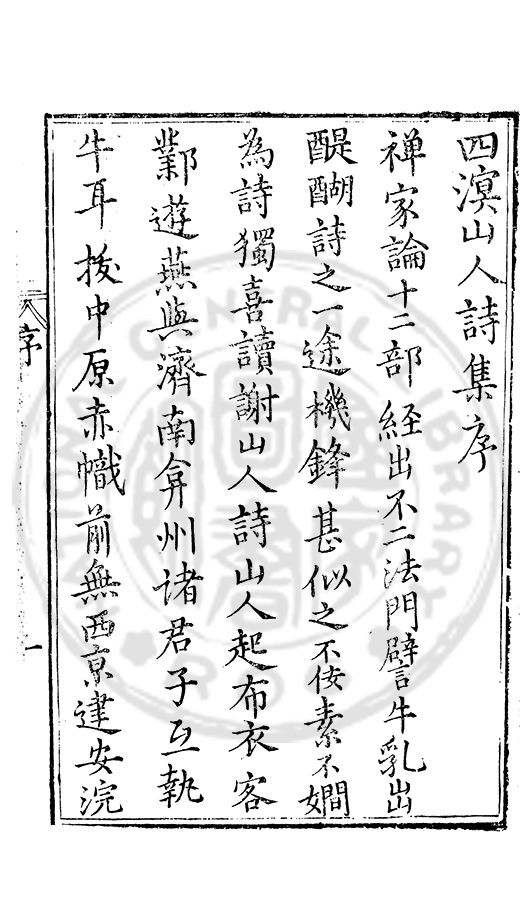 四溟山人詩集序
禅家論十二部経出不二法門譬牛乳出
醍醐詩之一途機鋒甚似之不佞素不嫺
為詩獨喜讀謝山人詩山人起布衣客
鄴遊燕與濟南弇州諸君子互執
牛耳拔中原赤幟前無西京建安浣
序
一